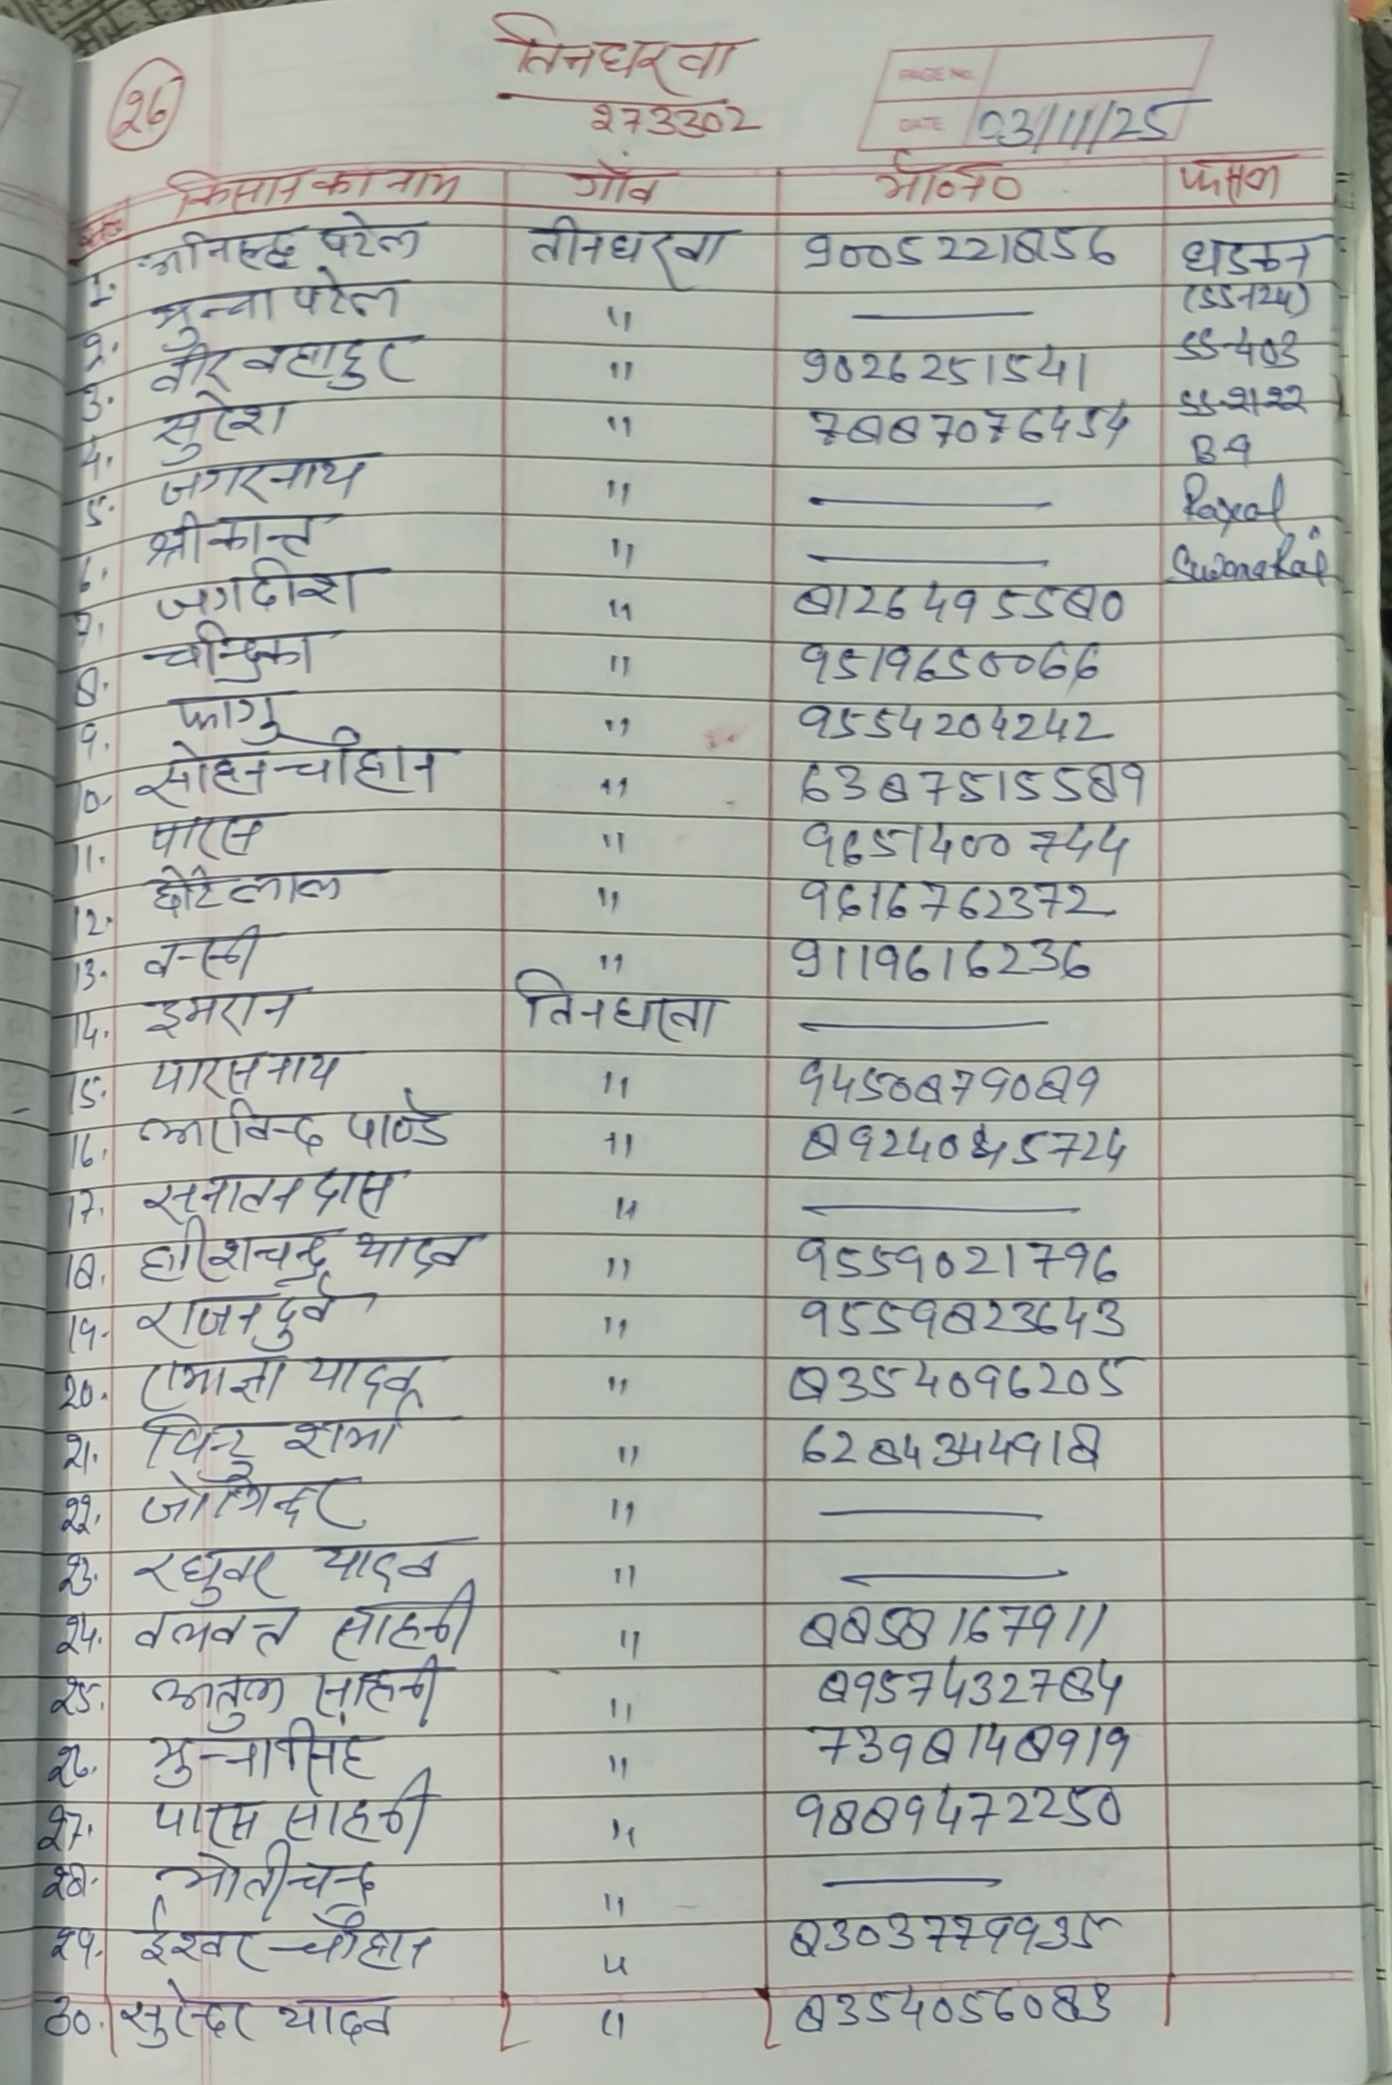 26
तिनघरवा
273302
PAGE NO.
DATE 03/11/25
क्र०सं० किसान का नाम गाँव मो०न० फसल
1. अनिरुद्ध पटेल तीनघरवा 9005221856 धड़कन
2. मुन्ना पटेल " — (SS-124)
3. वीर बहादुर " 9026251541 SS-403
4. सुरेश " 7887076454 SS-2122
5. जगरनाथ " — B-9
6. श्रीकान्त " — Raxol
7. जगदीश " 8126495580 Suwarna
8. चन्द्रिका " 9519650066
9. फागु " 9554204242
10. सोहन चौहान " 6387515589
11. पारस " 9651400744
12. छोटेलाल " 9616762372
13. वन्सी " 9119616236
14. इमरान तिनघरवा —
15. पारसनाथ " 9450879089
16. अरविन्द पाण्डे " 8924045724
17. सनातन दास " —
18. हरिशचन्द्र यादव " 9559021796
19. राजन दुबे " 9559823643
20. रामाज्ञा यादव " 8354096205
21. पिन्टु शर्मा " 6284344918
22. जोगिन्दर " —
23. रघुवर यादव " —
24. बलवन्त साहनी " 8858167911
25. अतुल साहनी " 8957432784
26. मुन्ना सिंह " 7398148919
27. पारस साहनी " 9889472250
28. मोतीचन्द्र " —
29. ईश्वर चौहान " 8303779935
30. सुरेन्दर यादव " 8354056083